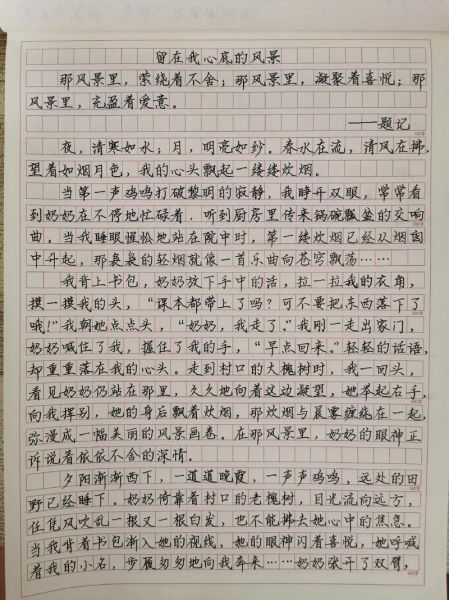 留在我心底的风景
那风景里，萦绕着不舍；那风景里，凝聚着喜悦；那
风景里，充盈着爱意。
——题记
夜，清寒如水；月，明亮如纱。春水在流，清风在拂，
望着如烟月色，我的心头飘起一缕缕炊烟。
当第一声鸡鸣打破黎明的寂静，我睁开双眼，常常看
到奶奶在不停地忙碌着，听到厨房里传来锅碗瓢盆的交响
曲。当我睡眼惺忪地站在院中时，第一缕炊烟已经从烟囱
中升起，那袅袅的轻烟就像一首乐曲向苍穹飘荡……
我背上书包，奶奶放下手中的活，拉一拉我的衣角，
摸一摸我的头，“课本都带上了吗？可不要把东西落下了
哦！”我朝她点点头，“奶奶，我走了。”我刚一走出家门，
奶奶喊住了我，握住了我的手，“早点回来。”轻轻的话语，
却重重落在我的心头。走到村口的大槐树时，我一回头，
看见奶奶仍站在那里，久久地向着这边凝望，她举起右手，
向我挥别，她的身后飘着炊烟，那炊烟与晨雾缠绕在一起，
弥漫成一幅美丽的风景画卷。在那风景里，奶奶的眼神正
诉说着依依不舍的深情。
夕阳渐渐西下，一道道晚霞，一声声鸡鸣，远处的田
野已经睡下。奶奶倚靠着村口的老槐树，目光流向远方，
任凭风吹乱一根又一根白发，也不能拂去她心中的焦急。
当我背着书包渐入她的视线，她的眼神闪着喜悦，她呼喊
着我的小名，步履匆匆地向我奔来……奶奶张开了双臂，